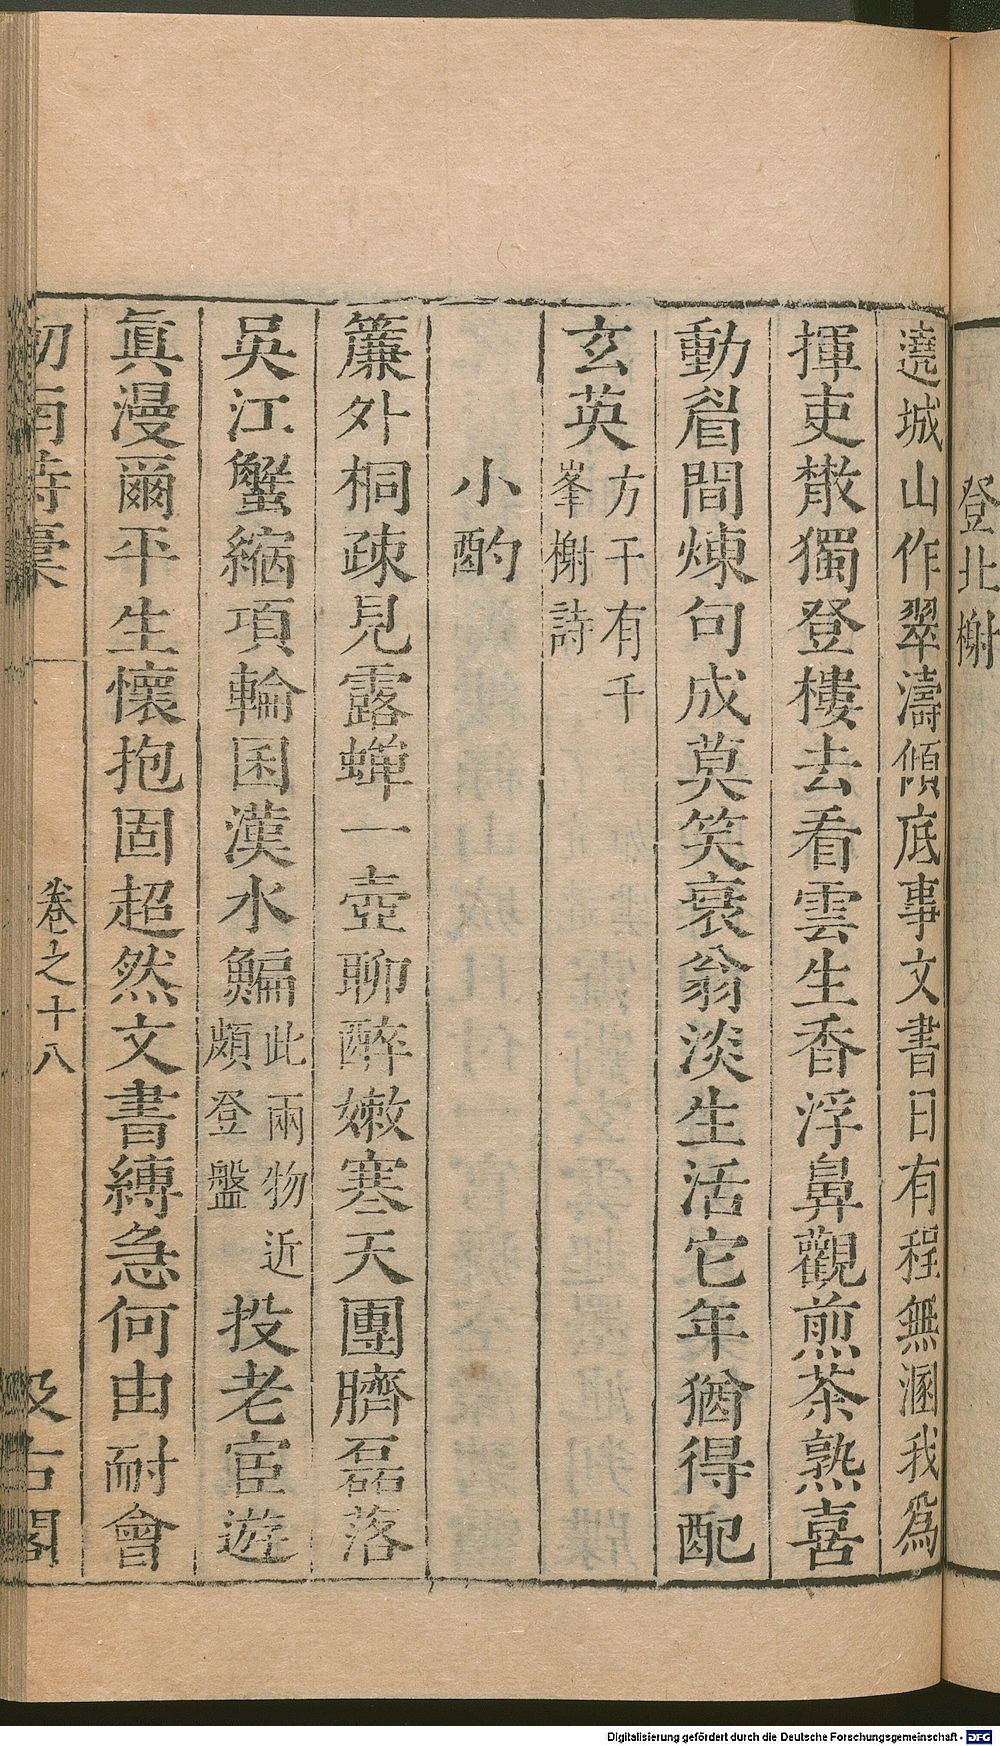 登北榭
遶城山作翠濤傾底事文書日有程無涵我爲
揮吏散獨登樓去看雲生香浮鼻觀煎茶熟喜
動眉間煉句成莫笑衰翁淡生活它年猶得配
玄英方干有千峯榭詩
小酌
簾外桐疎見露蟬一壺聊醉嫩寒天團臍磊落
吳江蟹縮項輪囷漢水鯿此兩物近頗登盤投老宦遊
眞漫爾平生懷抱固超然文書縛急何由耐會
劒南詩稾 卷之十八 汲古閣
Digitalisierung gefördert durch die Deutsche Forschungsgemeinschaft - DFG